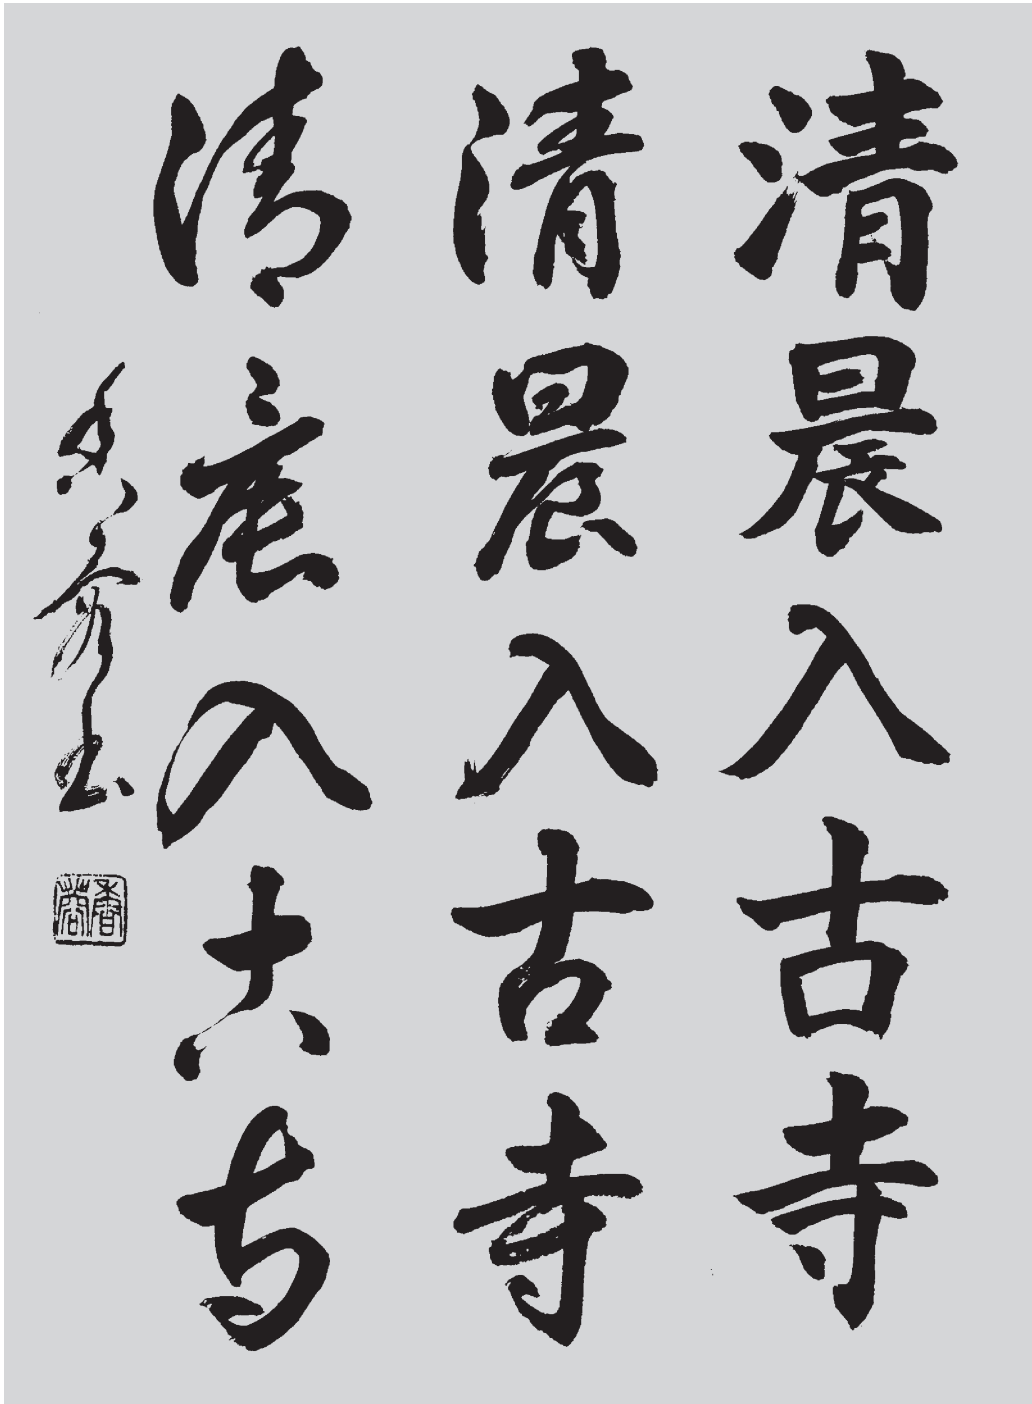 清晨入古寺
清晨入古寺
清晨入古寺
香蓉書
香蓉